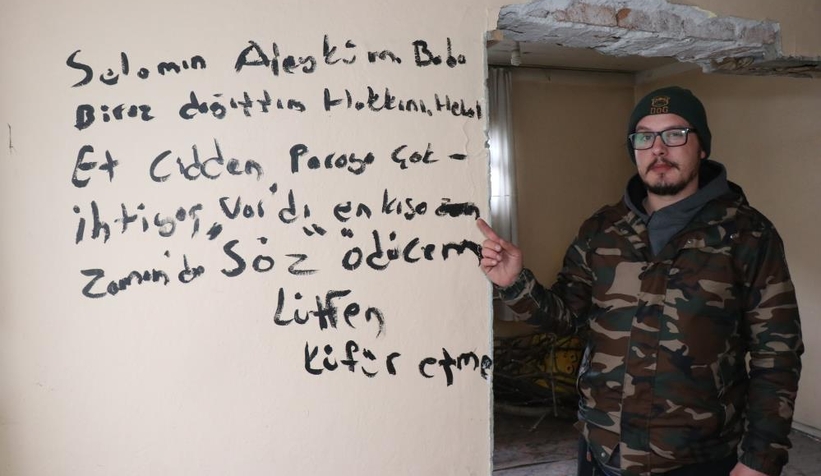 Selamın Aleyküm Baba
Biraz dağıttım Hakkını Helal
Et Cidden Paraya Çok -
ihtiyaç Var'dı en kısa
Zaman'da "Söz" ödücem
Lütfen
Küfür etme
DGG